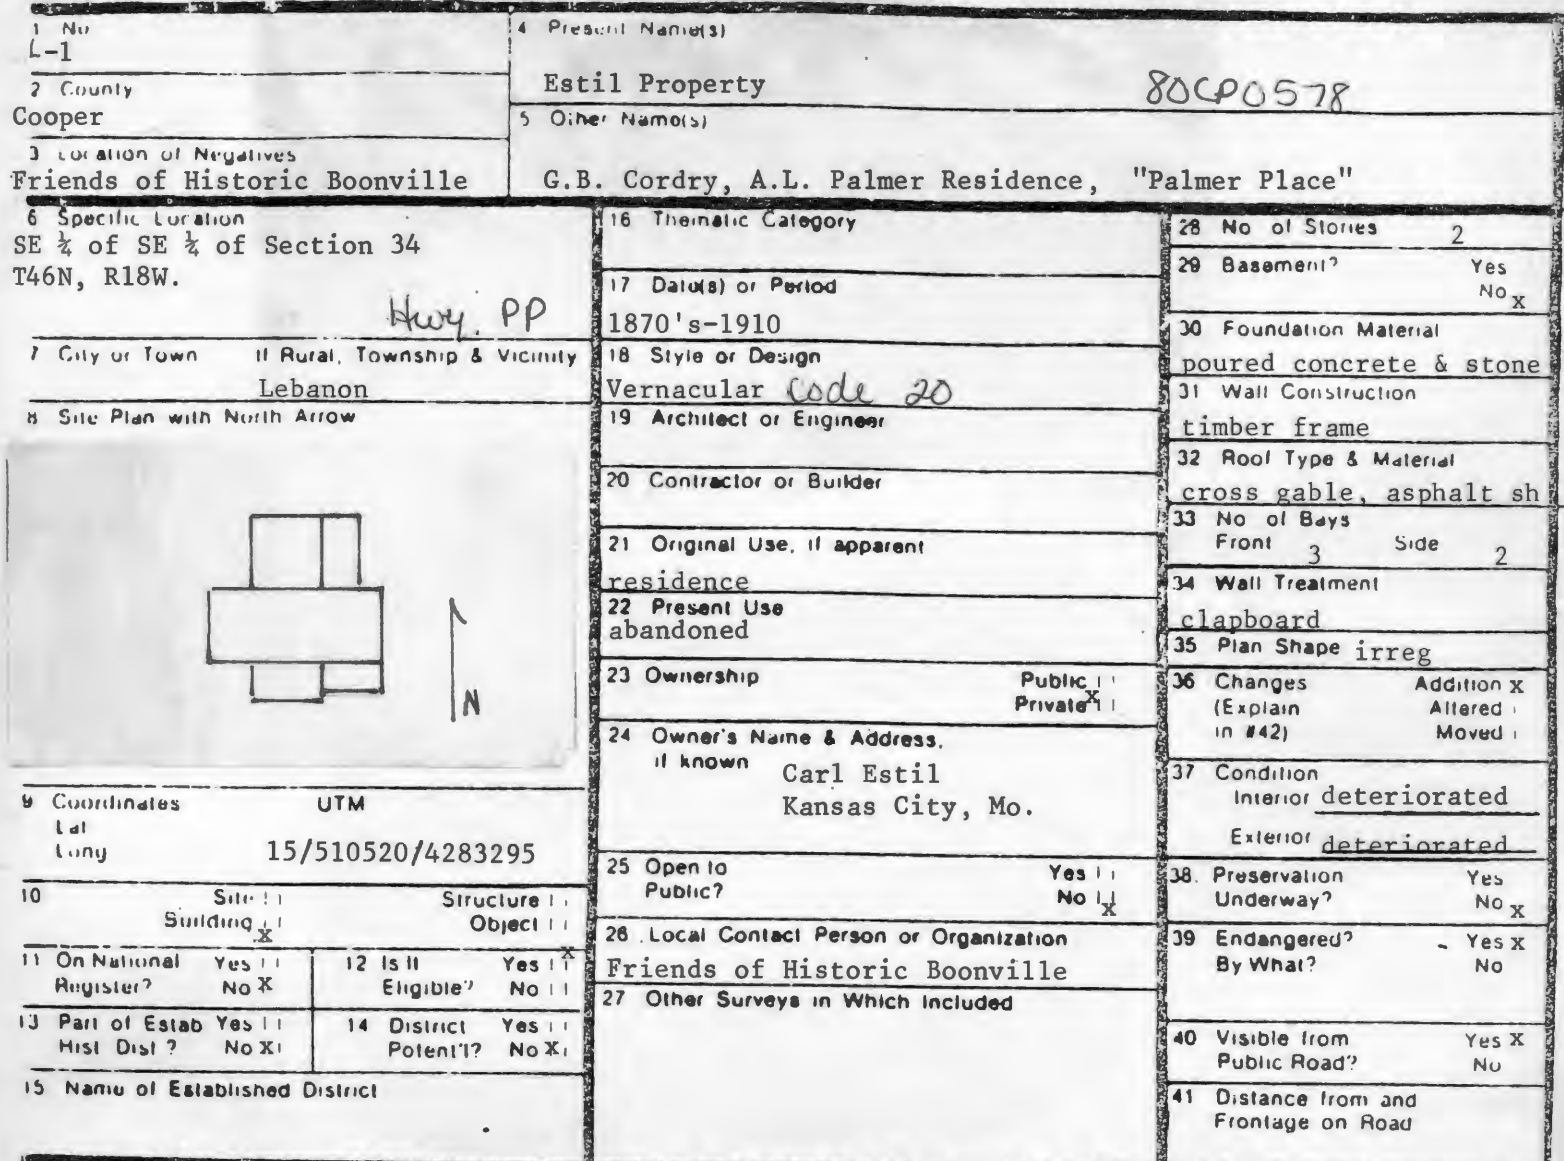 1 No
L-1
2 County
Cooper
3 Location of Negatives
Friends of Historic Boonville
4 Present Name(s)
Estil Property 80CP0578
5 Other Name(s)
G.B. Cordry, A.L. Palmer Residence, "Palmer Place"
6 Specific Location
SE ¼ of SE ¼ of Section 34
T46N, R18W.
Hwy. PP
7 City or Town If Rural, Township & Vicinity
Lebanon
8 Site Plan with North Arrow
N
9 Coordinates UTM
Lat
Long 15/510520/4283295
10 Site Structure
Building X Object
11 On National Yes
Register? No X
12 Is It Yes X
Eligible? No
13 Part of Estab Yes
Hist Dist? No X
14 District Yes
Potent'l? No X
15 Name of Established District
16 Thematic Category
17 Date(s) or Period
1870's-1910
18 Style or Design
Vernacular Code 20
19 Architect or Engineer
20 Contractor or Builder
21 Original Use, if apparent
residence
22 Present Use
abandoned
23 Ownership Public
Private X
24 Owner's Name & Address,
if known
Carl Estil
Kansas City, Mo.
25 Open to Yes
Public? No X
26 Local Contact Person or Organization
Friends of Historic Boonville
27 Other Surveys in Which Included
28 No of Stories 2
29 Basement? Yes
No X
30 Foundation Material
poured concrete & stone
31 Wall Construction
timber frame
32 Roof Type & Material
cross gable, asphalt sh
33 No of Bays
Front 3 Side 2
34 Wall Treatment
clapboard
35 Plan Shape irreg
36 Changes Addition X
(Explain Altered
in #42) Moved
37 Condition
Interior deteriorated
Exterior deteriorated
38. Preservation Yes
Underway? No X
39 Endangered? Yes X
By What? No
40 Visible from Yes X
Public Road? No
41 Distance from and
Frontage on Road